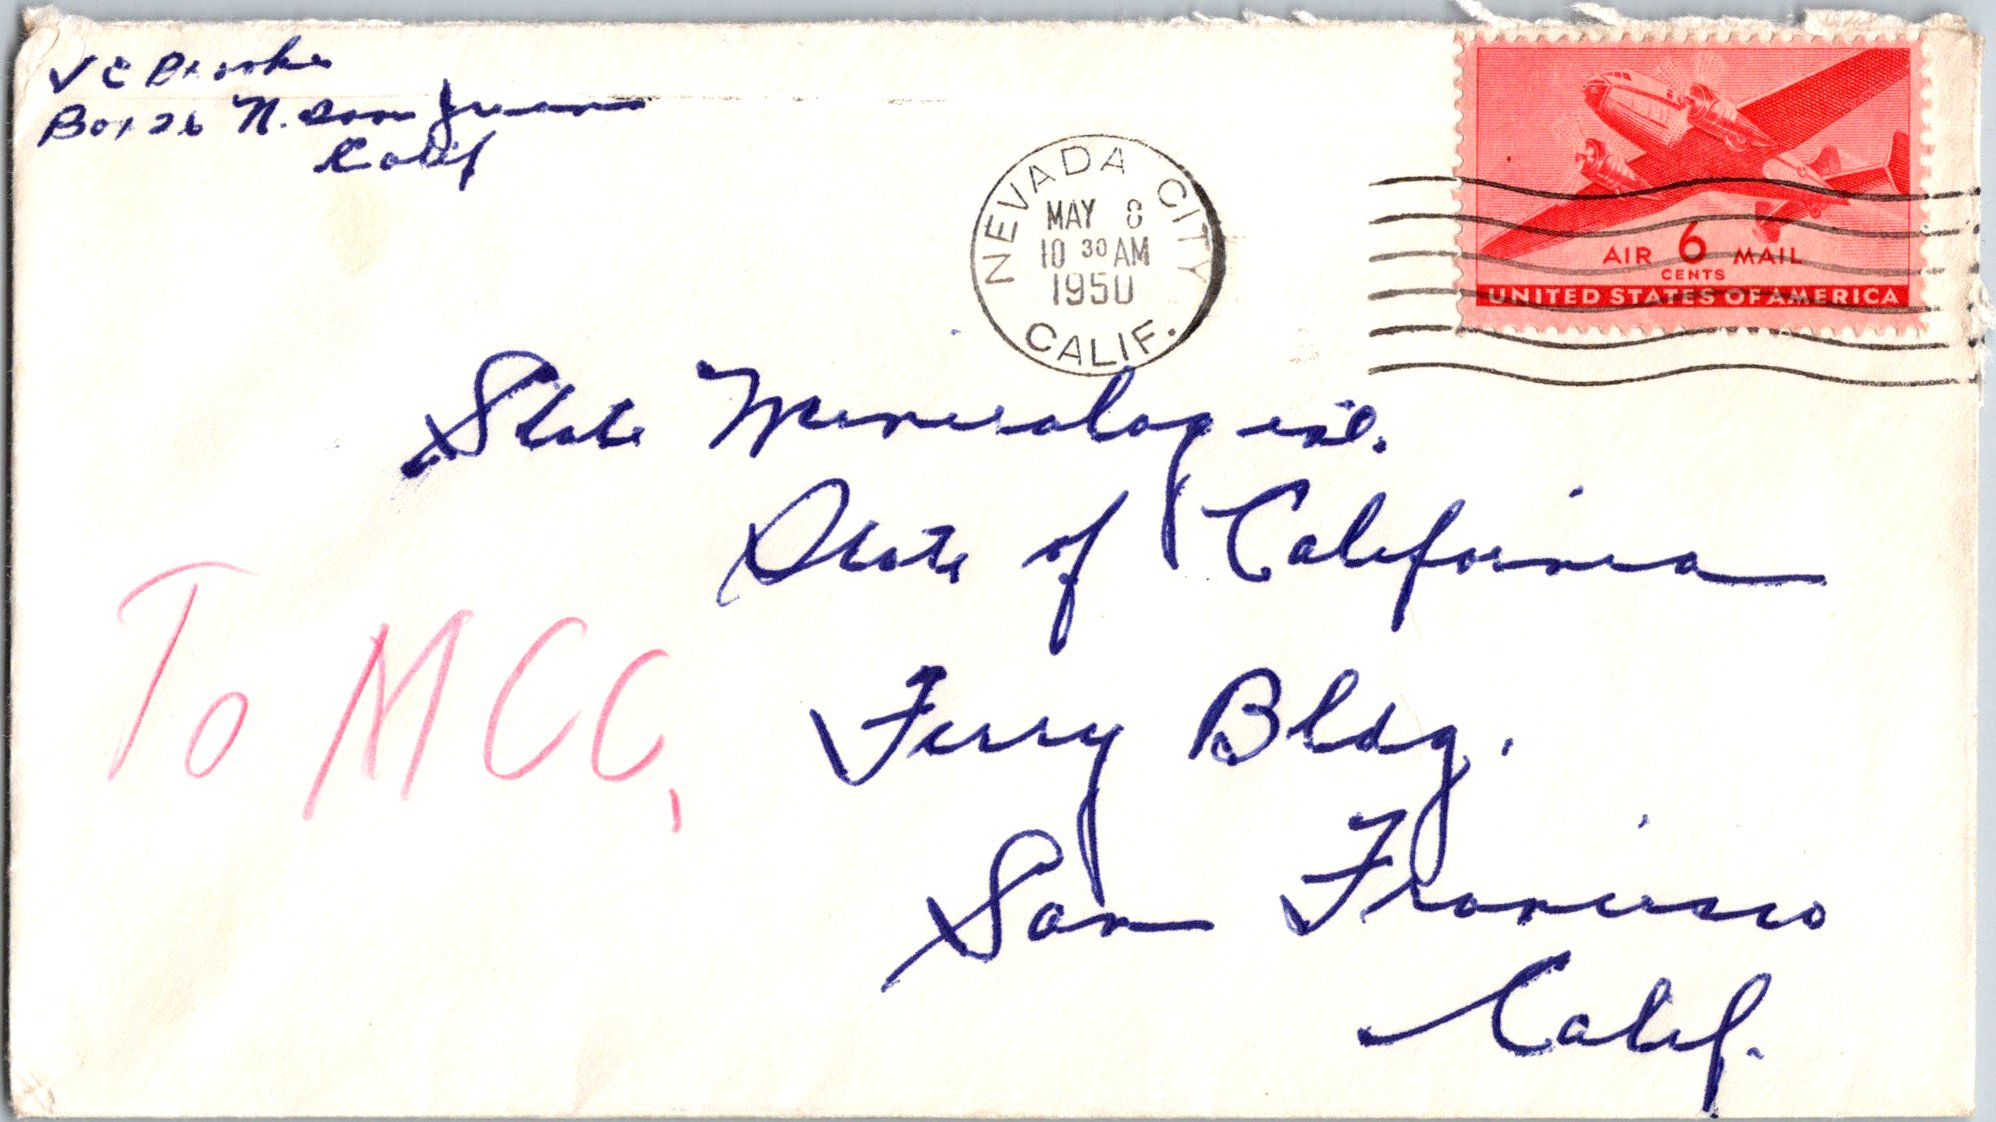 V C Brooke
Box 26 N. San Juan
Calif
NEVADA CITY
MAY 8
10 30 AM
1950
CALIF.
AIR 6 MAIL
CENTS
UNITED STATES OF AMERICA
State Mineralogist.
State of California
Ferry Bldg.
San Francisco
Calif.
To MCC,